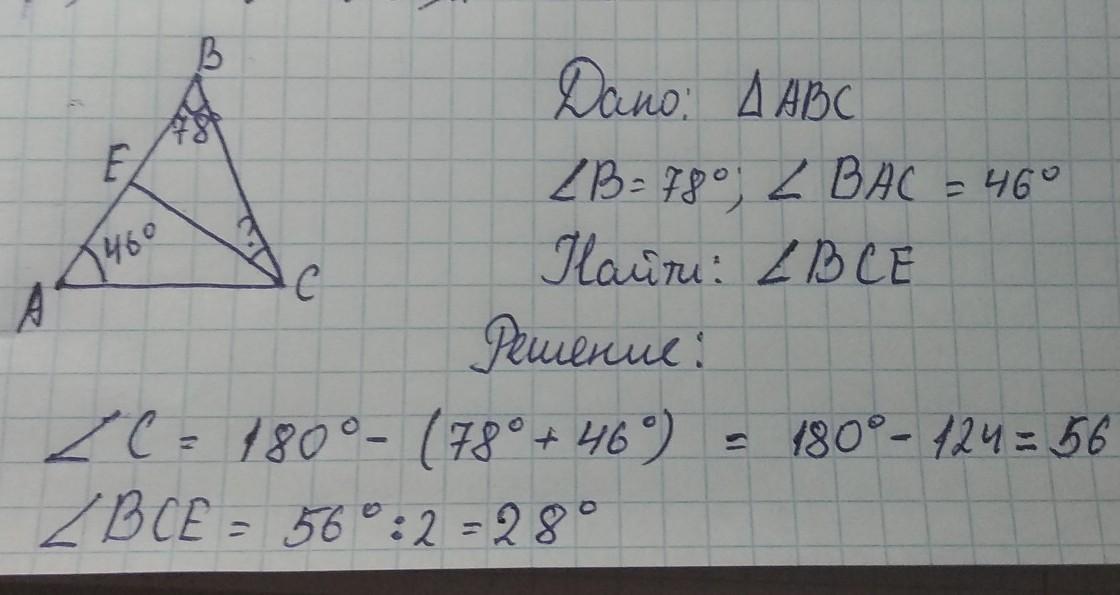 B
78
E
46°
?
A
C
Дано: ΔABC
∠B = 78°; ∠BAC = 46°
Найти: ∠BCE
Решение:
∠C = 180° - (78° + 46°) = 180° - 124 = 56
∠BCE = 56° : 2 = 28°